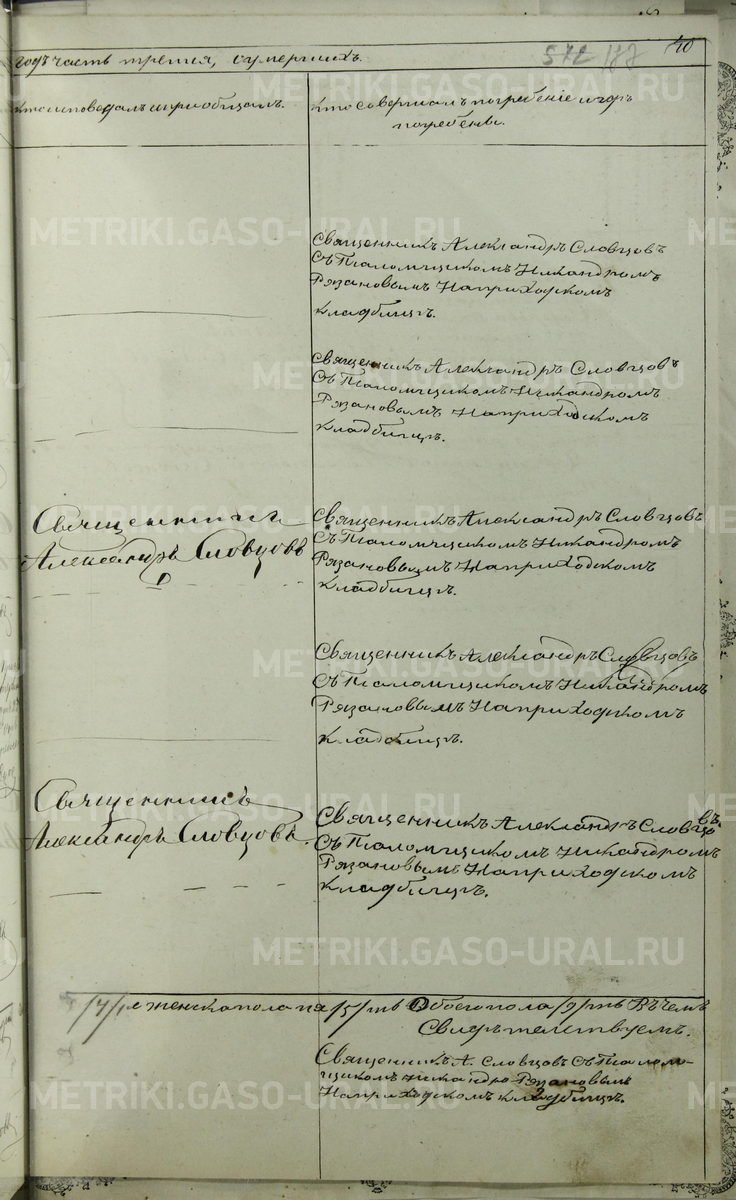 40
годъ часть третія, о умершихъ.
572 187
Кто исповѣдалъ и пріобщалъ.
Кто совершалъ погребеніе и гдѣ
погребены.
Священникъ Александръ Словцовъ
Съ Псаломщикомъ Никандромъ
Рязановымъ На приходскомъ
Кладбищѣ.
Священникъ Александръ Словцовъ
Съ Псаломщикомъ Никандромъ
Рязановымъ На приходскомъ
Кладбищѣ.
Священникъ
Александръ Словцовъ
Священникъ Александръ Словцовъ
Съ Псаломщикомъ Никандромъ
Рязановымъ На приходскомъ
Кладбищѣ.
Священникъ Александръ Словцовъ
Съ Псаломщикомъ Никандромъ
Рязановымъ На приходскомъ
Кладбищѣ.
Священникъ
Александръ Словцовъ
Священникъ Александръ Словцовъ
Съ Псаломщикомъ Никандромъ
Рязановымъ На приходскомъ
Кладбищѣ.
женска пола /5/ть Обоего пола /9/ть Въ чемъ
Свидѣтельствуемъ.
Священникъ А. Словцовъ Съ Псалом-
щикомъ Никандро Рязановымъ
На приходскомъ кладбищѣ.
METRIKI.GASO-URAL.RU